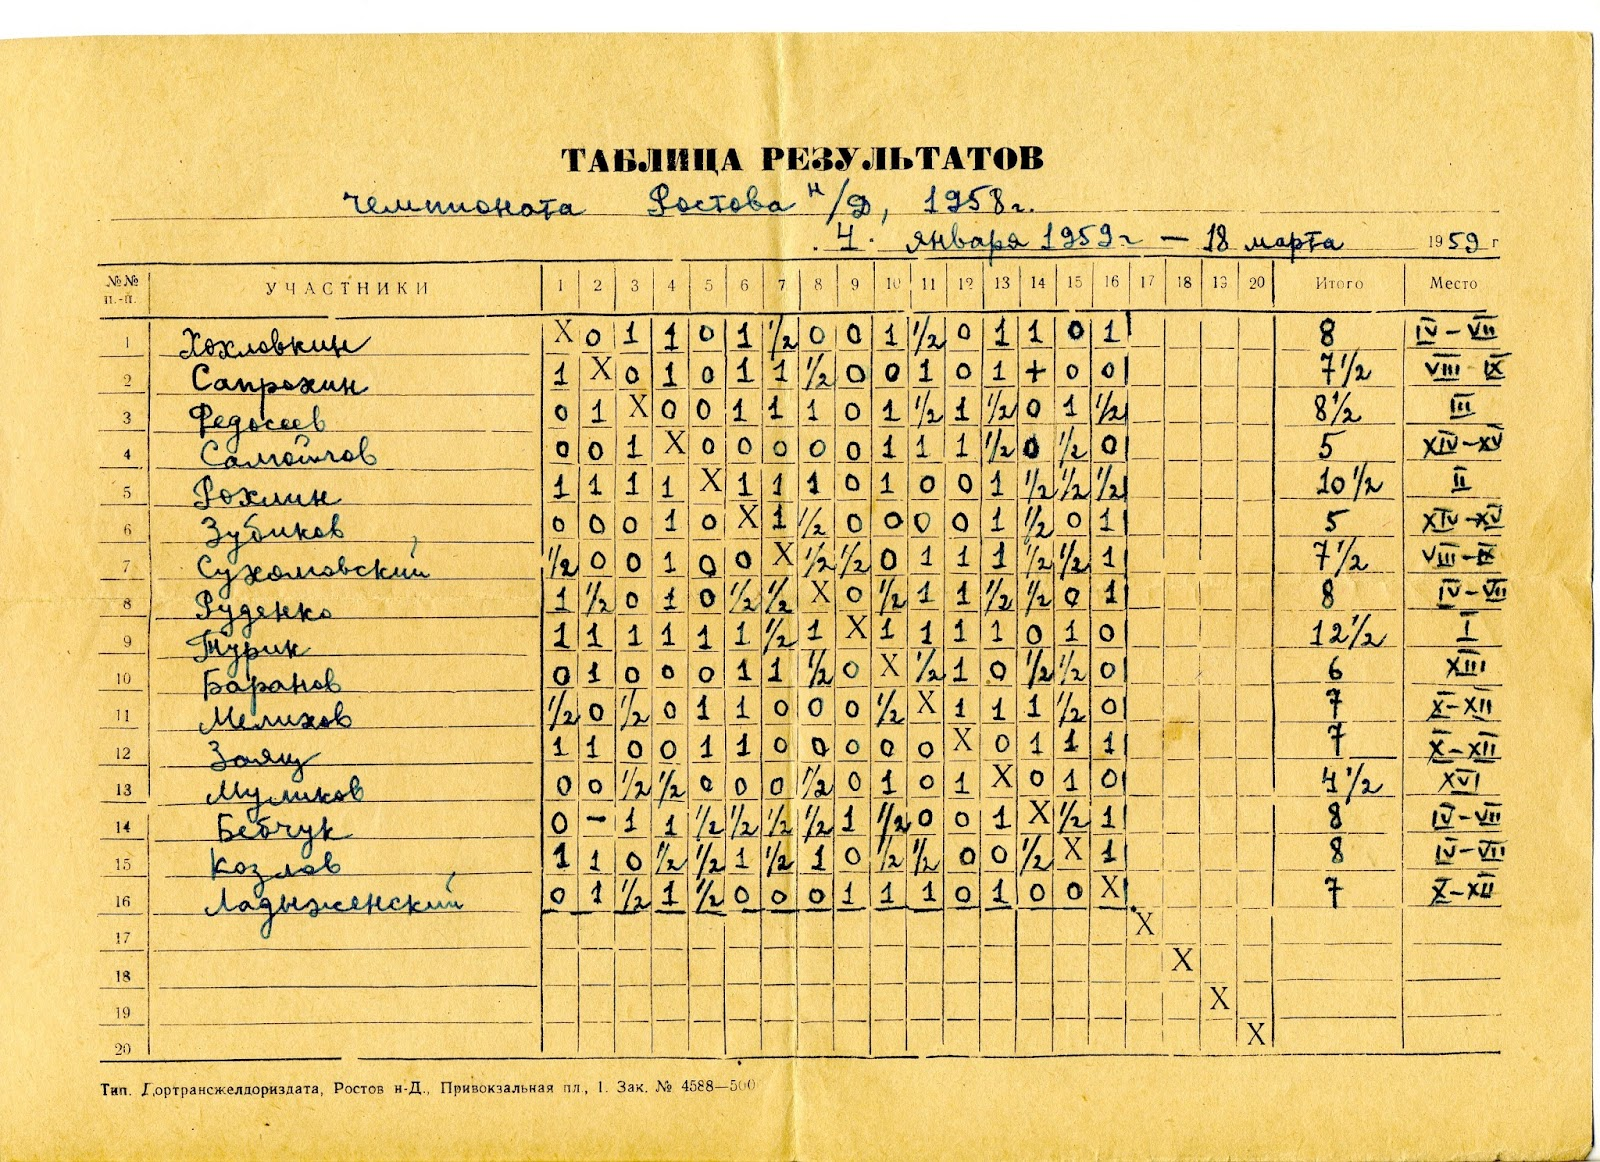 ТАБЛИЦА РЕЗУЛЬТАТОВ
чемпионата Ростова н/Д, 1958 г.
4 января 1959 г — 18 марта 1959 г
№№ п.-п. УЧАСТНИКИ 1 2 3 4 5 6 7 8 9 10 11 12 13 14 15 16 17 18 19 20 Итого Место
1 Хохловкин X 0 1 1 0 1 1/2 0 0 1 1/2 0 1 1 0 1 8 IV-VII
2 Сапрохин 1 X 0 1 0 1 1 1/2 0 0 1 0 1 + 0 0 7 1/2 VIII IX
3 Федосеев 0 1 X 0 0 1 1 1 0 1 1/2 1 1/2 0 1 1/2 8 1/2 III
4 Самойлов 0 0 1 X 0 0 0 0 0 1 1 1 1/2 0 1/2 0 5 XIV-XV
5 Рохлин 1 1 1 1 X 1 1 1 0 1 0 0 1 1/2 1/2 1/2 10 1/2 II
6 Зубиков 0 0 0 1 0 X 1 1/2 0 0 0 0 1 1/2 0 1 5 XIV-XV
7 Сухомовский 1/2 0 0 1 0 0 X 1/2 1/2 0 1 1 1 1/2 1/2 1 7 1/2 VIII-IX
8 Руденко 1 1/2 0 1 0 1/2 1/2 X 0 1/2 1 1 1/2 1/2 0 1 8 IV-VII
9 Турик 1 1 1 1 1 1 1/2 1 X 1 1 1 1 0 1 0 12 1/2 I
10 Баранов 0 1 0 0 0 1 1 1/2 0 X 1/2 1 0 1/2 1/2 0 6 XIII
11 Мелихов 1/2 0 1/2 0 1 1 0 0 0 1/2 X 1 1 1 1/2 0 7 X-XII
12 Заяц 1 1 0 0 1 1 0 0 0 0 0 X 0 1 1 1 7 X-XII
13 Муликов 0 0 1/2 1/2 0 0 0 1/2 0 1 0 1 X 0 1 0 4 1/2 XVI
14 Бебчук 0 - 1 1 1/2 1/2 1/2 1/2 1 1/2 0 0 1 X 1/2 1 8 IV-VII
15 Козлов 1 1 0 1/2 1/2 1 1/2 1 0 1/2 1/2 0 0 1/2 X 1 8 IV-VII
16 Ладыженский 0 1 1/2 1 1/2 0 0 0 1 1 1 0 1 0 0 X 7 X-XII
17 X
18 X
19 X
20 X
Тип. Дортрансжелдориздата, Ростов н-Д., Привокзальная пл., 1. Зак. № 4588—500